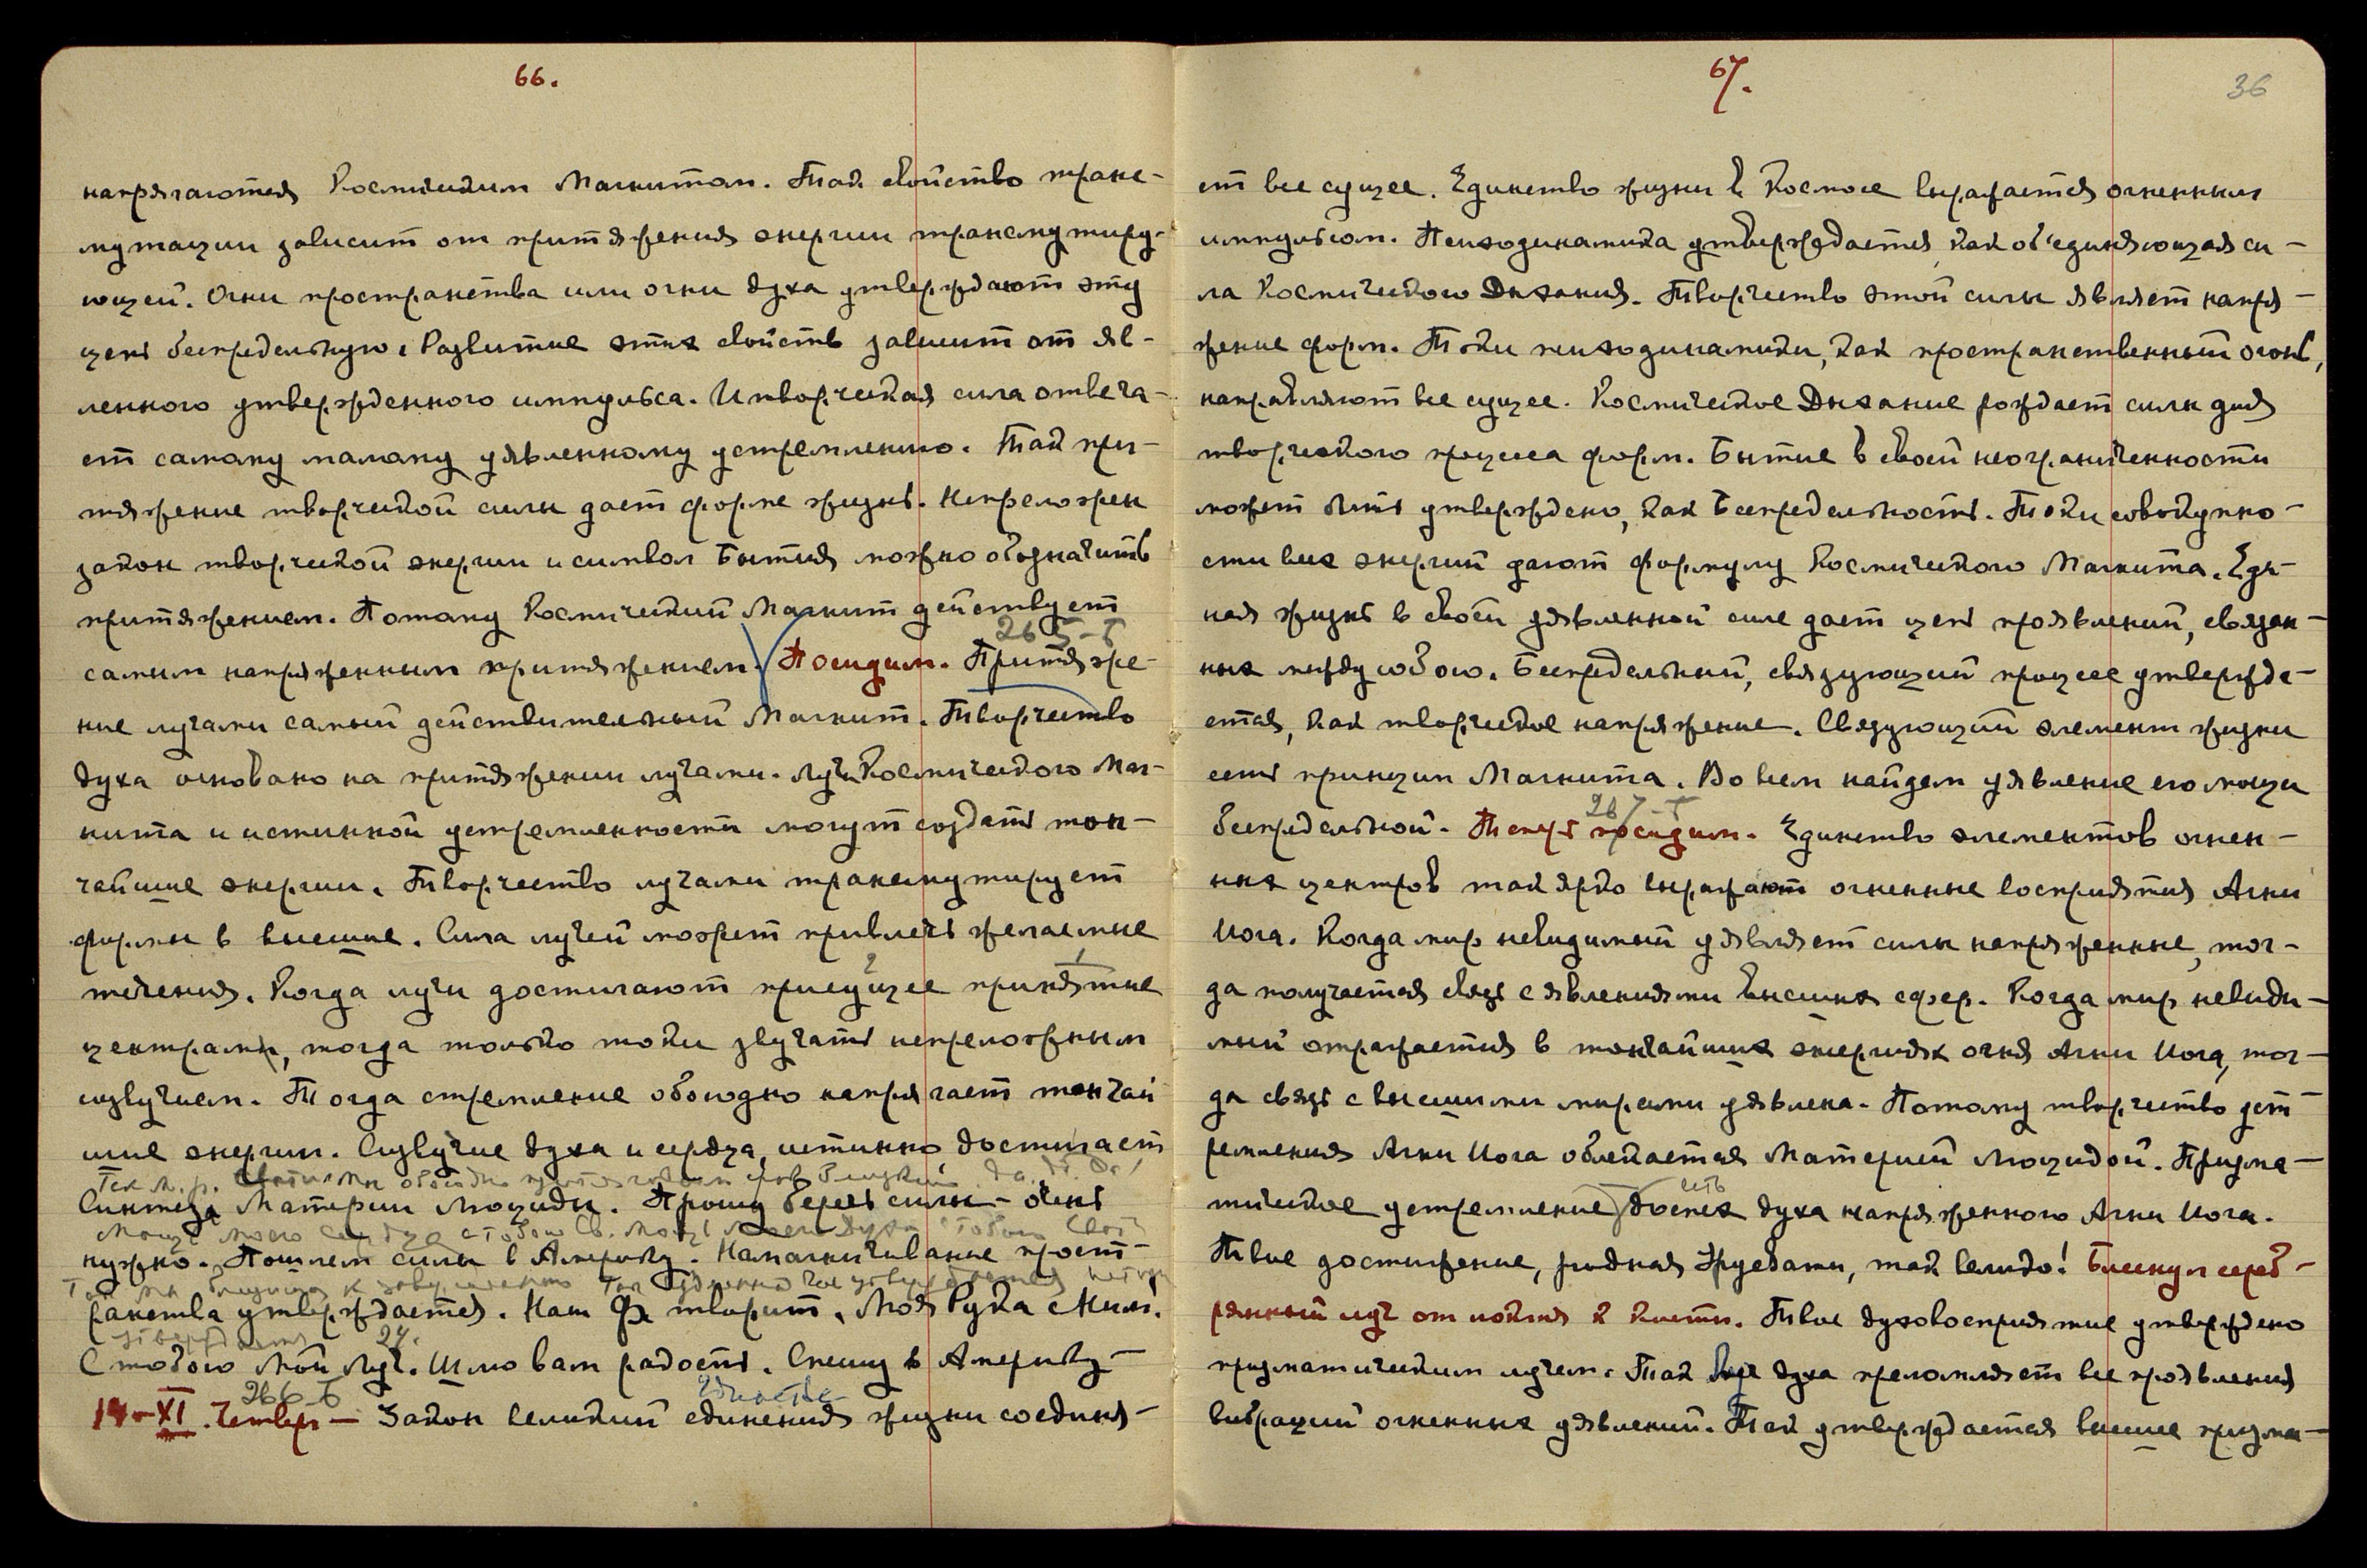 66.
напрягаются Космическим Магнитом. Так свойство транс-
мутации зависит от притяжения энергии трансмутиру-
ющей. Огни пространства или огни духа утверждают эту
цепь беспредельную. Развитие этих свойств зависит от яв-
ленного утвержденного импульса. И творческая сила отвеча-
ет самому малому уявленному устремлению. Так при-
тяжение творческой силы дает форме жизнь. Непреложен
закон творческой энергии и символ Бытия можно обозначить
притяжением. Потому Космический Магнит действует
265-Б
самым напряженным притяжением. Посидим. Притяже-
ние лучами самый действительный Магнит. Творчество
духа основано на притяжении лучами. Лучи Космического Маг-
нита и истинной устремленности могут создать тон-
чайшие энергии. Творчество лучами трансмутирует
формы в высшие. Сила лучей может привлечь желаемые
течения. Когда лучи достигают присущее принятие
центрами, тогда только токи звучать непреложным
созвучием. Тогда стремление обоюдно напрягает тончай
шие энергии. Созвучие духа и сердца, истинно достигает
Так М. р. да. да. да!
Синтеза Материи Люциды. Прошу беречь силы - очень
Мощь моего Сердца с тобою Св. Мощь Моего Духа с тобою
нужно. Пошлем силы в Америку. Намагничивание прост-
Так к завершению Так утверждается
ранства утверждается. Наш Ф. творит. Моя Рука с Ним.
24.
С тобою Мой Луч. Шлю вам радость. Спешу в Америку —
266-Б единство
14-XI. Четверг — Закон великий единения жизни соединя-
67.
36
ет все сущее. Единство жизни в Космосе выражается огненным
импульсом. Психодинамика утверждается, как об'единяющая си-
ла Космического Дыхания. Творчество этой силы являет напря-
жение форм. Токи психодинамики, как пространственный огонь,
направляют все сущее. Космическое Дыхание рождает силы для
творческого процесса форм. Бытие в своей неограниченности
может быть утверждено, как Беспредельность. Токи совокупно-
сти всех энергий дают формулу Космического Магнита. Еди-
ная жизнь в своей уявленной силе дает цепь проявлений, связан-
ных между собою. Беспредельный, связующий процесс утвержда-
ется, как творческое напряжение. Связующий элемент жизни
есть принцип Магнита. Во всем найдем уявление его мощи
267-Б
беспредельной. Теперь посидим. Единство элементов огнен-
ных центров так ярко выражают огненные восприятия Агни
Йога. Когда мир невидимый уявляет силы напряженные, тог-
да получается связь с явлениями высших сфер. Когда мир невиди-
мый отражается в тончайших энергиях огня Агни Йога, тог-
да связь с высшими мирами уявлена. Потому творчество уст
ремления Агни Йога облекается Материей Люцидой. Призма-
есть
тическое устремление доспех духа напряженного Агни Йога.
Твое достижение, родная Урусвати, так велико! Блеснул сереб-
рянный луч от локтя к кисти. Твое духовосприятие утверждено
призматическим лучем. Так луч духа преломляет все проявления
вибраций огненных уявлений. Так утверждается высшее призма-